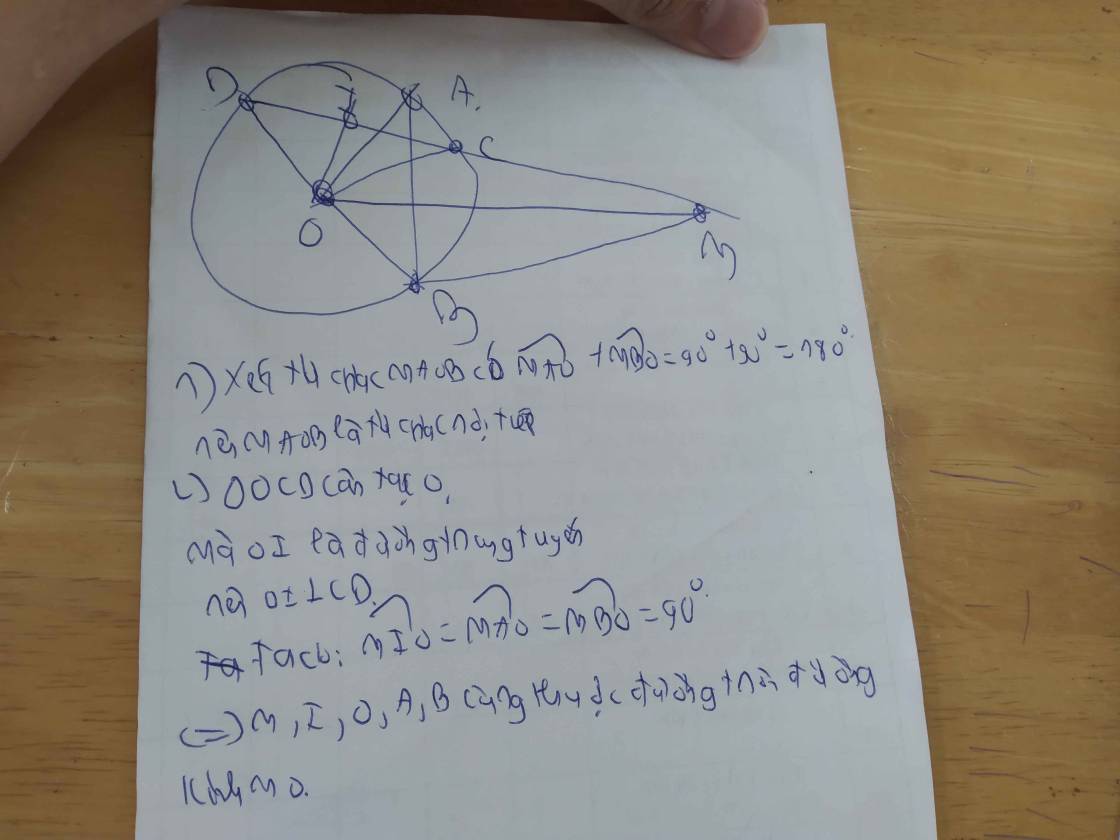 D
I
A.
C
O
M
B
1) Xét tứ giác MAOB có MAO + MBO = 90° + 90° = 180°
nên MAOB là tứ giác nội tiếp
2) ΔOCD cân tại O,
Mà OI là đường trung tuyến
nên OI ⊥ CD.
Ta có: MIO = MAO = MBO = 90°
(=) M, I, O, A, B cùng thuộc đường tròn đường
kính MO.